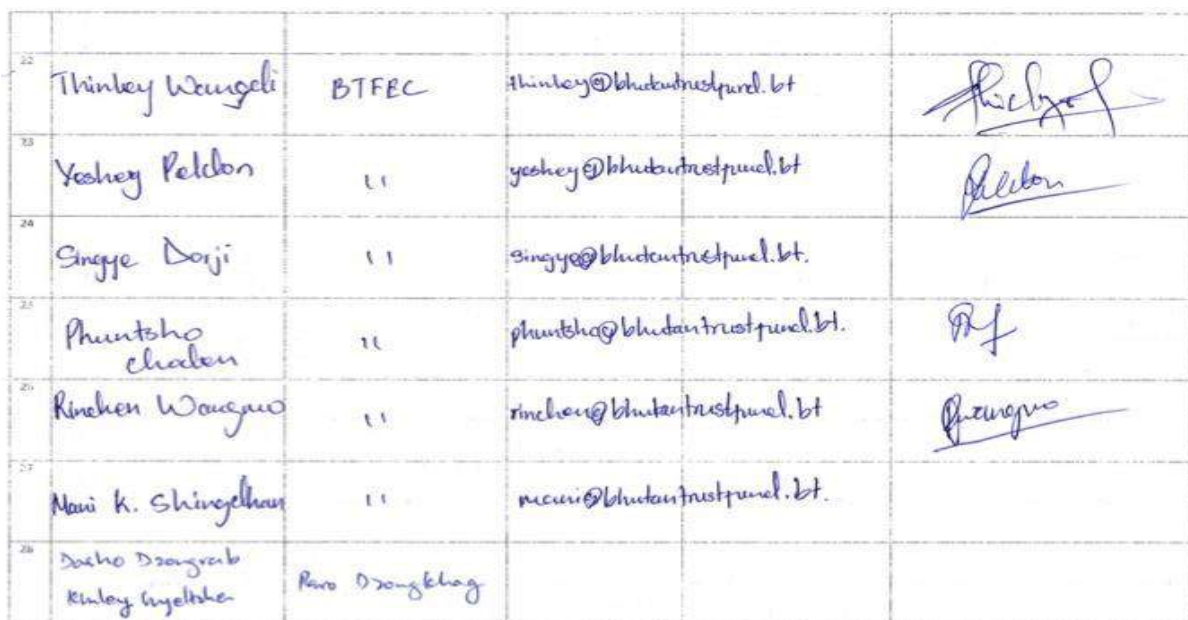 22 Thinley Wangdi BTFEC thinley@bhutantrustfund.bt
23 Yeshey Peldon " yeshey@bhutantrustfund.bt Peldon
24 Singye Dorji " singye@bhutantrustfund.bt.
25 Phuntsho " phuntsho@bhutantrustfund.bt.
Choden
26 Rinchen Wangmo " rinchen@bhutantrustfund.bt
27 Mani K. Shingdhan " mani@bhutantrustfund.bt.
28 Dasho Dzongrab
Kinley Gyeltshen Paro Dzongkhag